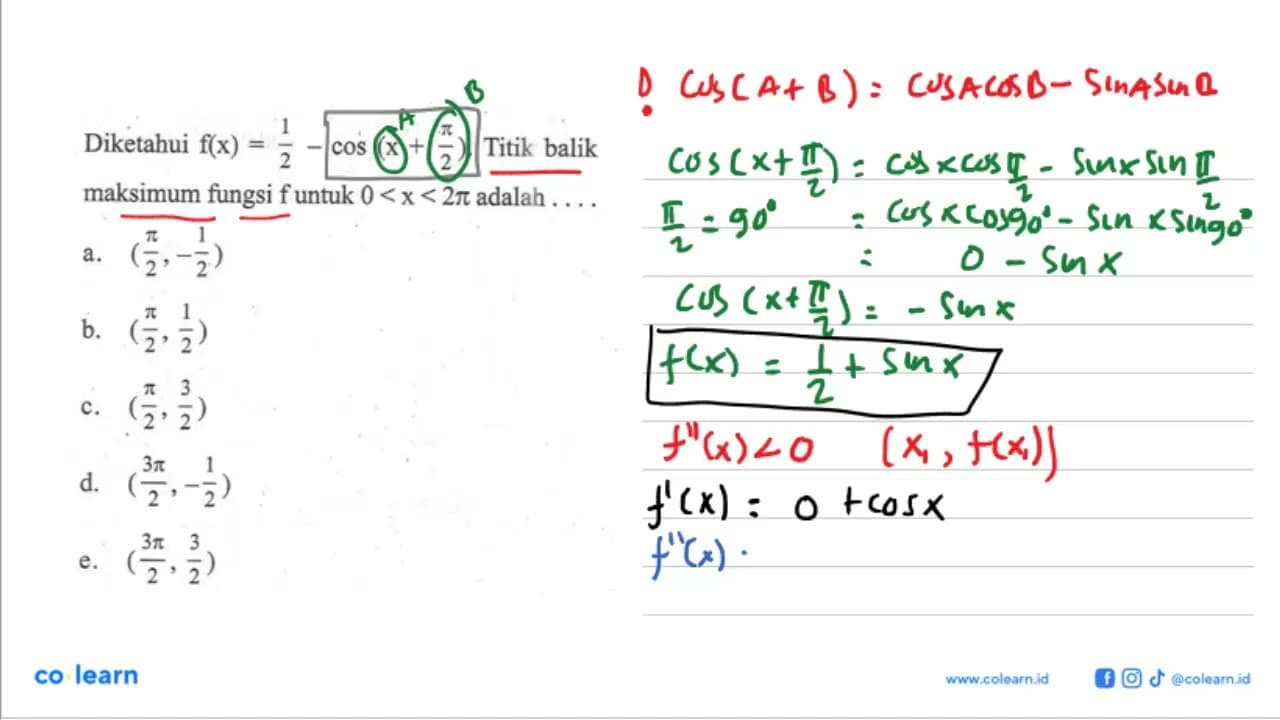 Diketahui f(x) = 1/2 - cos (x + π/2). Titik balik
maksimum fungsi f untuk 0 < x < 2π adalah . . . .
a. (π/2, -1/2)
b. (π/2, 1/2)
c. (π/2, 3/2)
d. (3π/2, -1/2)
e. (3π/2, 3/2)
A
B
! Cos(A+B) = CosA cosB - SinA sinB
Cos(x+π/2) = cosx cosπ/2 - Sinx sin π/2
π/2 = 90° = cosx cos90° - Sin x sin90°
= 0 - Sin x
Cos(x+π/2) = - Sin x
f(x) = 1/2 + Sin x
f''(x) < 0 (x₁, f(x₁))
f'(x) = 0 + cosx
f''(x) -
co learn
www.colearn.id
@colearn.id